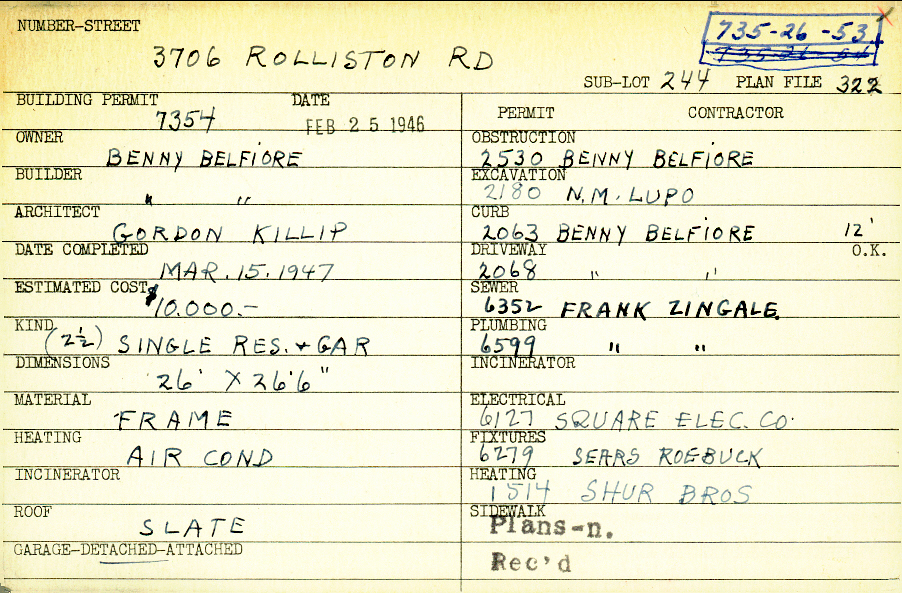 NUMBER-STREET
3706 ROLLISTON RD
735-26-53
735-26-54
SUB-LOT 244 PLAN FILE 322
BUILDING PERMIT DATE
7354 FEB 25 1946
OWNER
BENNY BELFIORE
BUILDER
" "
ARCHITECT
GORDON KILLIP
DATE COMPLETED
MAR. 15. 1947
ESTIMATED COST
$10.000.-
KIND
(2½) SINGLE RES. + GAR
DIMENSIONS
26' X 26'6"
MATERIAL
FRAME
HEATING
AIR COND
INCINERATOR
ROOF
SLATE
GARAGE-DETACHED-ATTACHED
PERMIT CONTRACTOR
OBSTRUCTION
2530 BENNY BELFIORE
EXCAVATION
2180 N.M. LUPO
CURB
2063 BENNY BELFIORE 12'
DRIVEWAY O.K.
2068 " "
SEWER
6352 FRANK ZINGALE
PLUMBING
6599 " "
INCINERATOR
ELECTRICAL
6127 SQUARE ELEC. CO.
FIXTURES
6279 SEARS ROEBUCK
HEATING
1514 SHUR BROS
SIDEWALK
Plans-n.
Rec'd